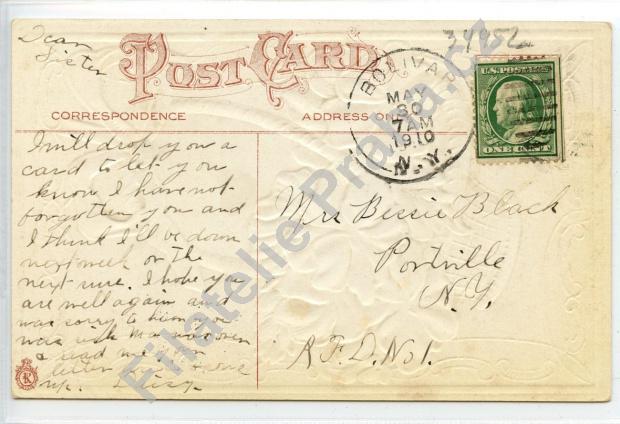 34956
Dear
Sister
POST CARD
CORRESPONDENCE
ADDRESS ONLY
BOLIVAR
MAY
30
7 AM
1910
N.Y.
U.S. POSTAGE
ONE CENT
I will drop you a
card to let you
know I have not
forgotten you and
I think I'll be down
next week or the
next sure. I hope you
are well again and
was sorry to hear you
was sick Ma was over
& read me your
letter
up. Daisy
Mrs Bessie Black
Portville
N.Y.
R.F.D. No 1.
K
Filatelie Praha.cz